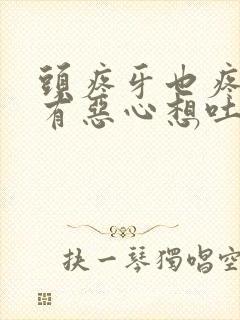 頭疼牙也疼
有惡心想吐
抉一琴獨唱空